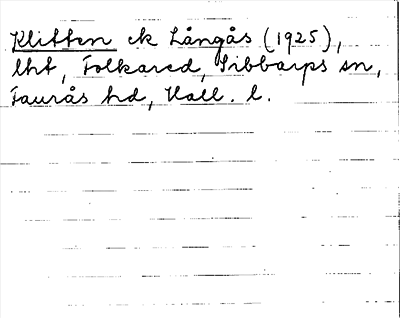 Klitten ek Långås (1925),
lht, Folkared, Sibbarps sn,
Faurås hd, Hall. l.